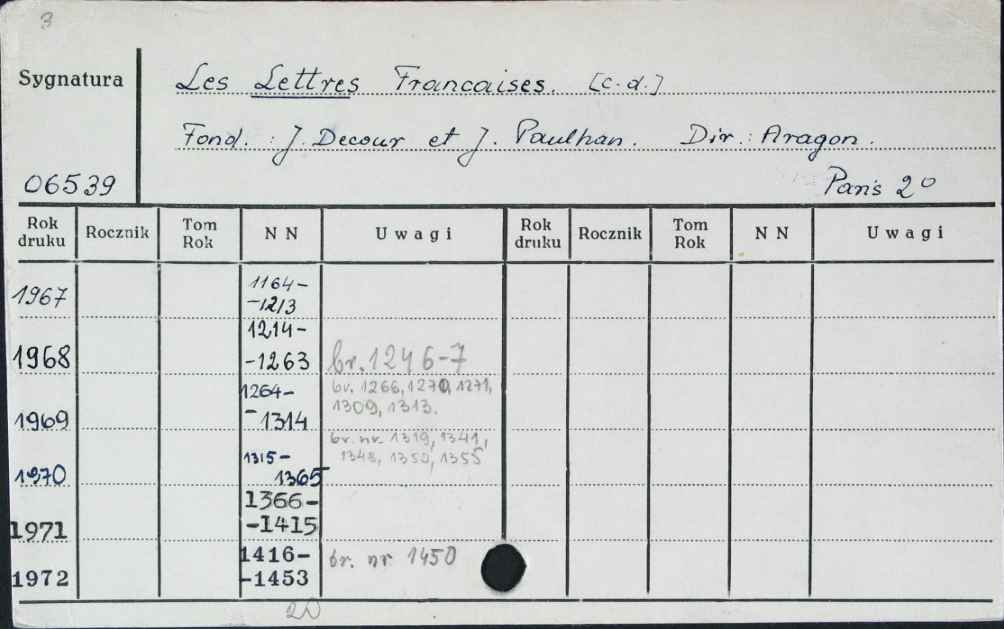 3
Sygnatura
Les Lettres Francaises. [c.d.]
Fond. : J. Decour et J. Paulhan. Dir. : Aragon.
06539
Paris 2º
Rok druku Rocznik Tom Rok N N Uwagi Rok druku Rocznik Tom Rok N N Uwagi
1967 1164-
-1213
1968 1214-
-1263 br. 1246-7
1969 1264-
-1314 br. 1266, 1270, 1271,
1309, 1313.
1970 1315-
1365 br. nr. 1319, 1341,
1348, 1350, 1355
1971 1366-
-1415
1972 1416-
-1453 br. nr 1450